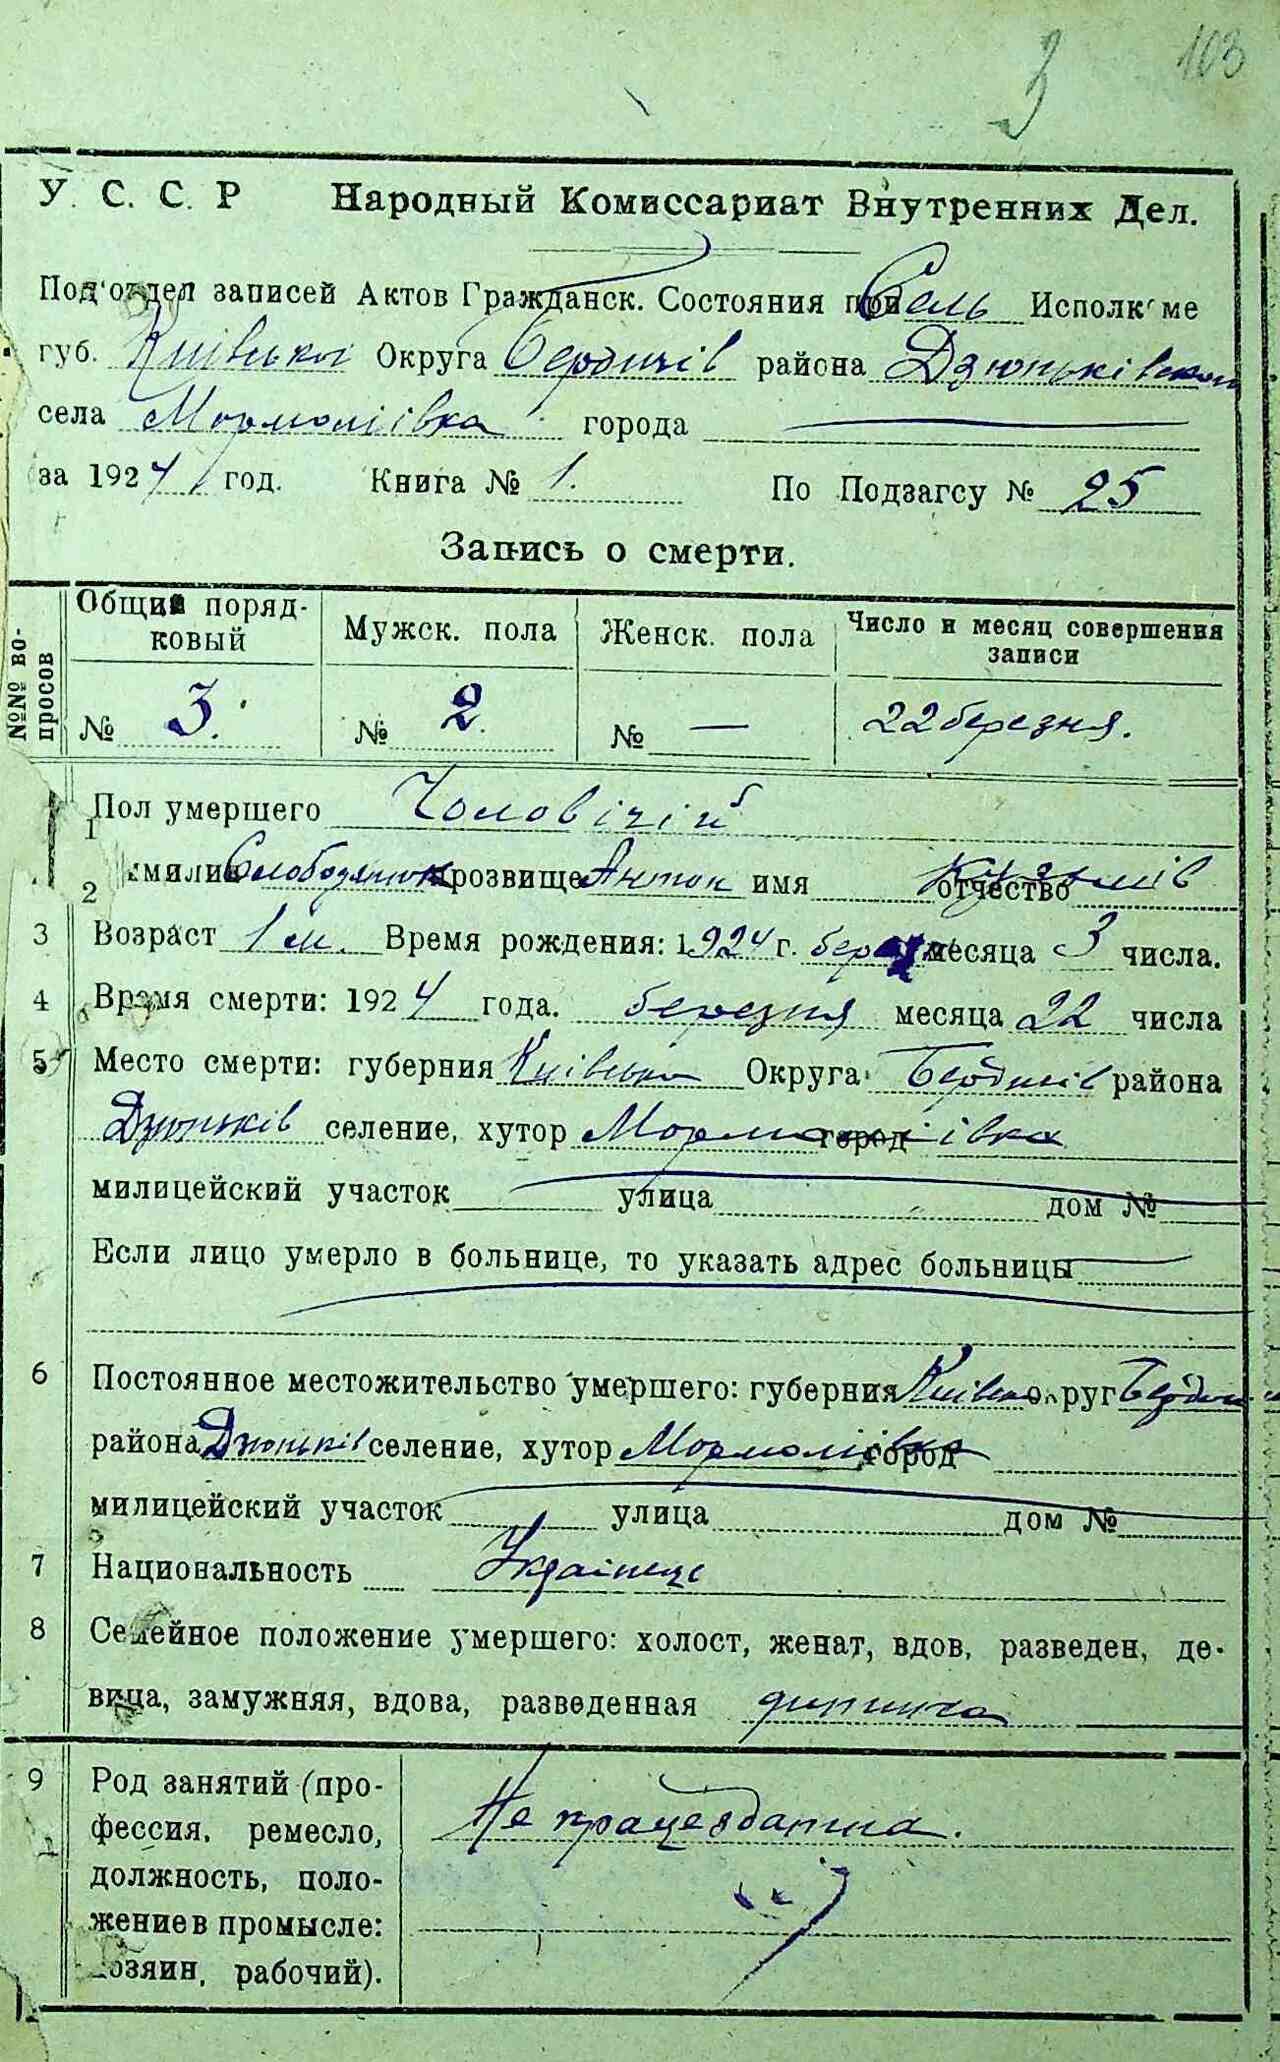 103
3
У. С. С. Р Народный Комиссариат Внутренних Дел.
Под'отдел записей Актов Гражданск. Состояния при Сель Исполк'ме
губ. Київської Округа Бердичів района Дзюньківськом
села Мормоліївка города
за 1924 год. Книга № 1. По Подзагсу № 25
Запись о смерти.
№№ вопросов
Общий поряд-
ковый Мужск. пола Женск. пола Число и месяц совершения
записи
№ 3. № 2. № — 22 березня.
1 Пол умершего Чоловічій
2 Фамилия Слободянюк прозвище Антон имя отчество Кузьмів
3 Возраст 1 м. Время рождения: 1924 г. березня месяца 3 числа.
4 Время смерти: 1924 года. березня месяца 22 числа
5 Место смерти: губерния Київська Округа Бердичів района
Дзюньків селение, хутор Мормоліївка город
милицейский участок улица дом №
Если лицо умерло в больнице, то указать адрес больницы
6 Постоянное местожительство умершего: губерния Київсько округ Бердич
района Дзюньків селение, хутор Мормоліївка город
милицейский участок улица дом №
7 Национальность Українець
8 Семейное положение умершего: холост, женат, вдов, разведен, де-
вица, замужняя, вдова, разведенная
9 Род занятий (про-
фессия, ремесло,
должность, поло-
жение в промысле:
хозяин, рабочий).
Не працездатна.